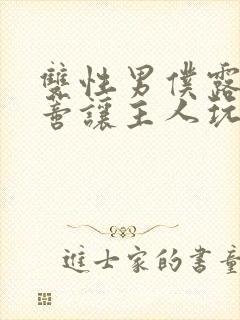 雙性男僕露
讓主人玩
進士家的書童